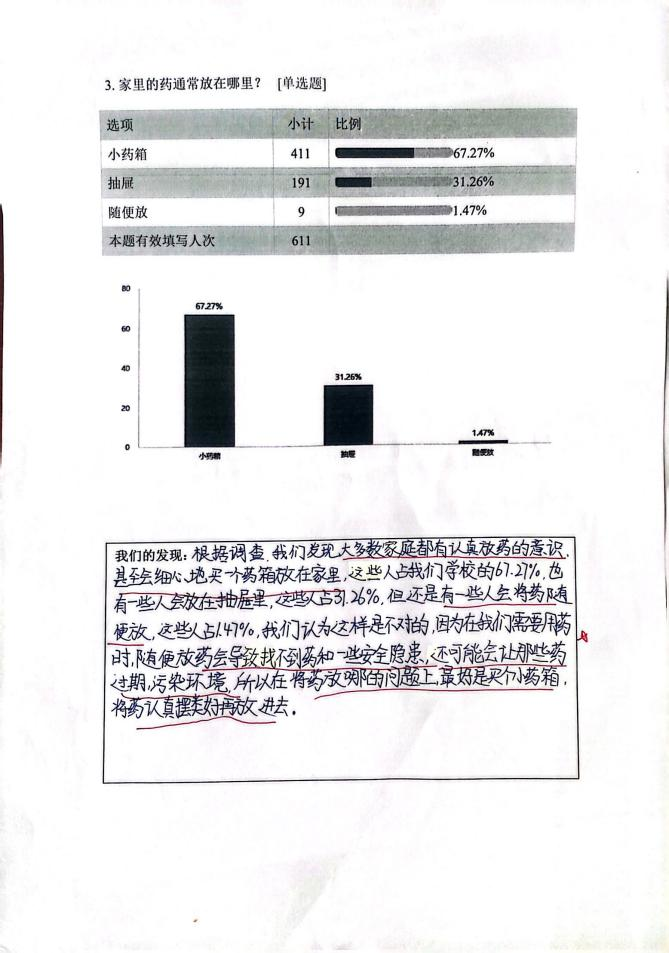 3. 家里的药通常放在哪里？ [单选题]
选项 小计 比例
小药箱 411 67.27%
抽屉 191 31.26%
随便放 9 1.47%
本题有效填写人次 611
80
60
40
20
0
67.27%
31.26%
1.47%
小药箱 抽屉 随便放
我们的发现：根据调查，我们发现大多数家庭都有认真放药的意识，
甚至会细心地买一个药箱放在家里，这些人占我们学校的67.27%，也
有一些人会放在抽屉里，这些人占31.26%，但还是有一些人会将药随
便放，这些人占1.47%，我们认为这样是不对的，因为在我们需要用药
时，随便放药会导致找不到药和一些安全隐患，还可能会让那些药
过期，污染环境，所以在将药放哪的问题上，最好是买个小药箱，
将药认真摆类好再放进去。